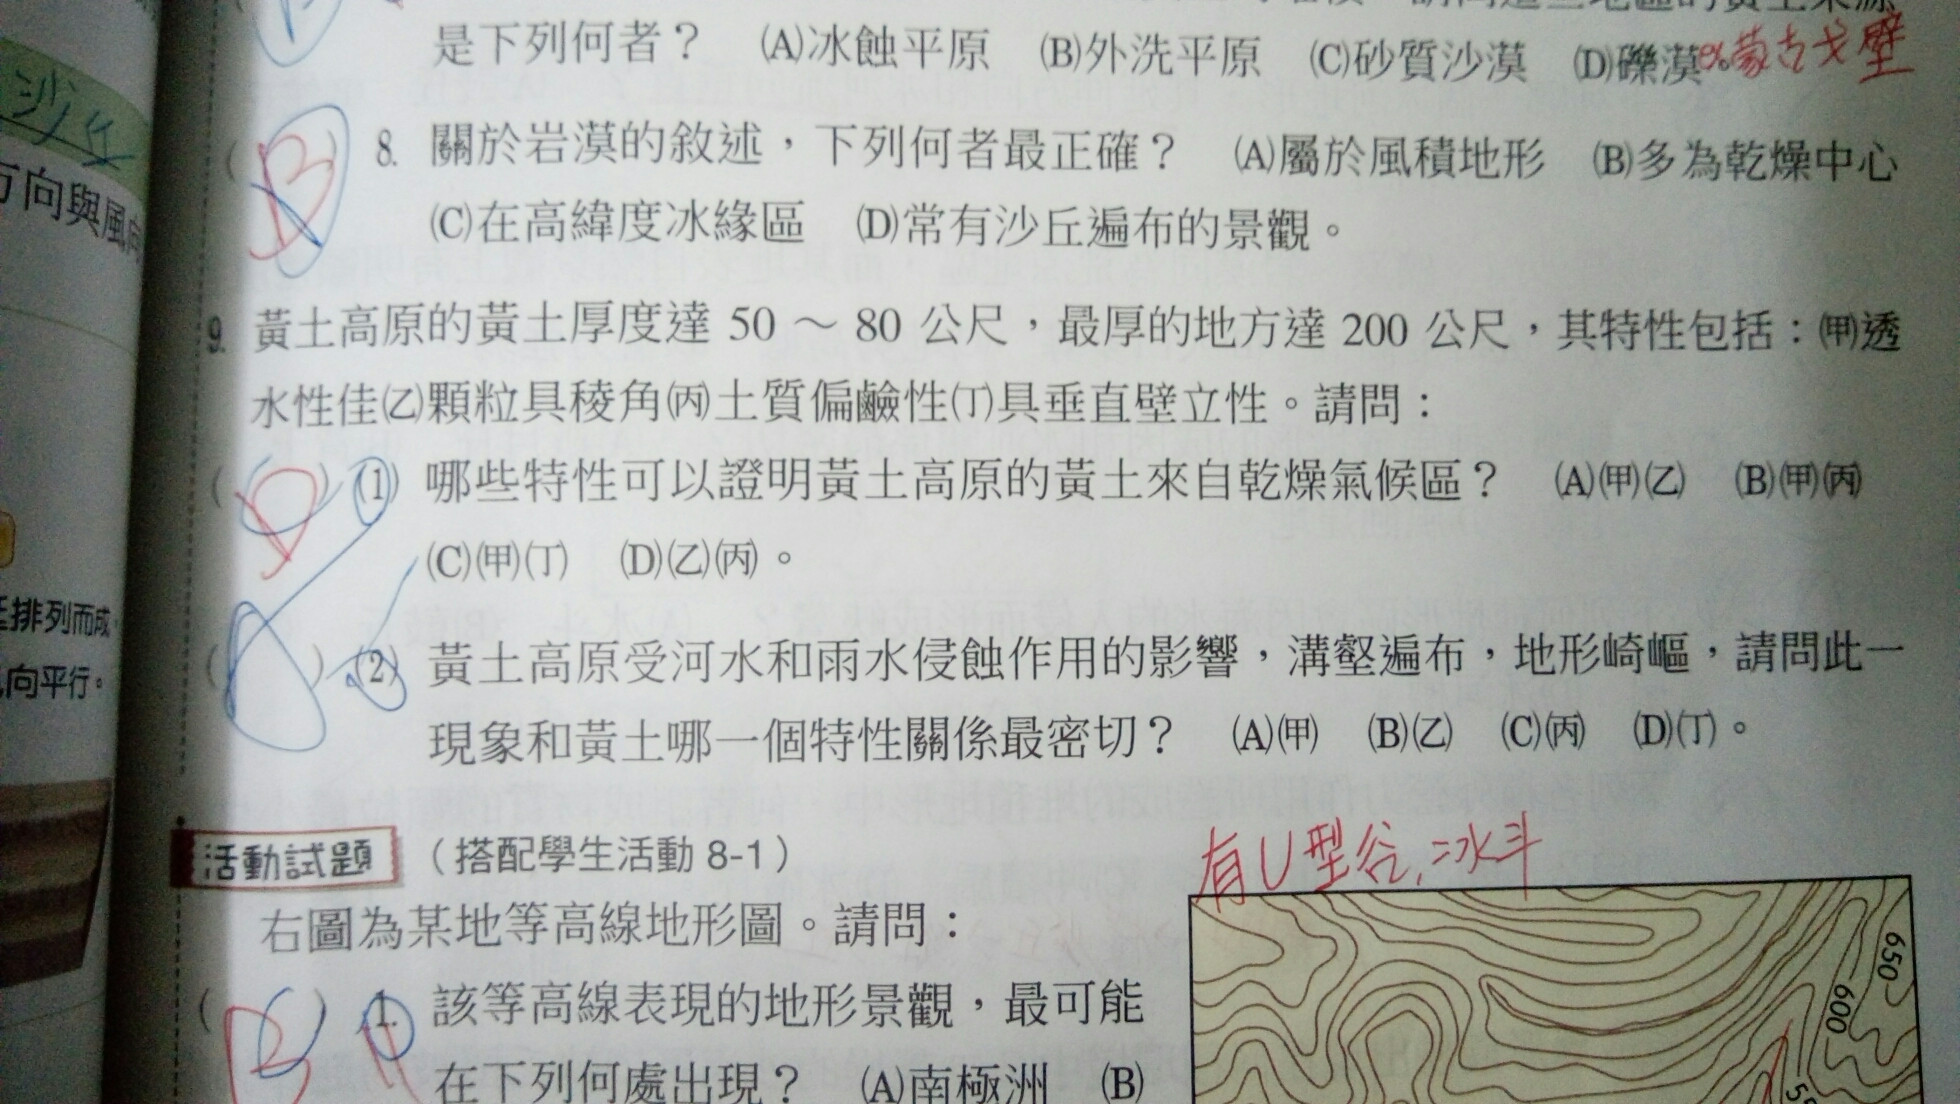 是下列何者？ (A)冰蝕平原 (B)外洗平原 (C)砂質沙漠 (D)礫漠。蒙古戈壁
沙丘
方向與風向
8. 關於岩漠的敘述，下列何者最正確？ (A)屬於風積地形 (B)多為乾燥中心
(C)在高緯度冰緣區 (D)常有沙丘遍布的景觀。
9. 黃土高原的黃土厚度達 50 ～ 80 公尺，最厚的地方達 200 公尺，其特性包括：(甲)透
水性佳(乙)顆粒具稜角(丙)土質偏鹼性(丁)具垂直壁立性。請問：
( D ) (1) 哪些特性可以證明黃土高原的黃土來自乾燥氣候區？ (A)(甲)(乙) (B)(甲)(丙)
(C)(甲)(丁) (D)(乙)(丙)。
排列而成
向平行。
( ) (2) 黃土高原受河水和雨水侵蝕作用的影響，溝壑遍布，地形崎嶇，請問此一
現象和黃土哪一個特性關係最密切？ (A)(甲) (B)(乙) (C)(丙) (D)(丁)。
活動試題 （搭配學生活動 8-1）
有U型谷,=冰斗
右圖為某地等高線地形圖。請問：
( ) 1. 該等高線表現的地形景觀，最可能
在下列何處出現？ (A)南極洲 (B)
650
600